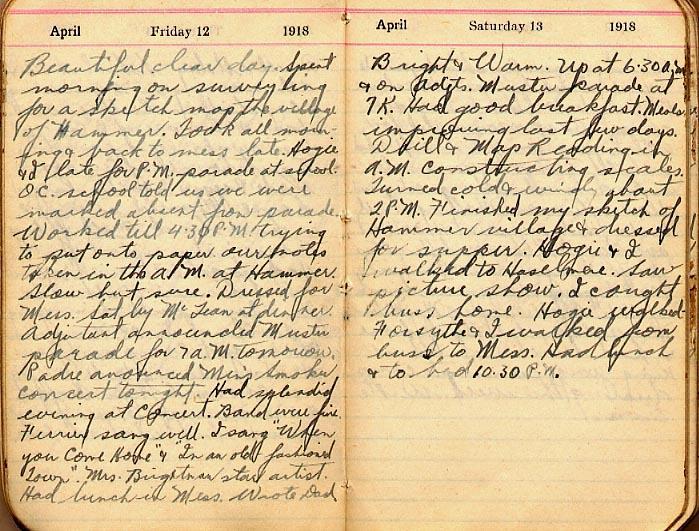 April Friday 12 1918
Beautiful clear day. Spent
morning on surveying
for a sketch map the village
of Hammer. Took all morn-
ing & back to mess late. Hogie
& I late for P.M. parade at school.
O.C. school told us we were
marked absent from parade.
Worked till 4:30 P.M. trying
to put onto paper our notes
taken in the A.M. at Hammer.
Slow but sure. Dressed for
Mess. Sat by McLean at dinner.
Adjutant announced Muster
parade for 7 a.M. tomorrow.
Padre anounced Mess Smoker
concert tonight. Had splendid
evening at Concert. Band were fine.
Ferrier sang well. I sang "When
you Come Home" & "In an old fashioned
Town". Mrs. Brightman star artist.
Had lunch in Mess. Wrote Dad
April Saturday 13 1918
Bright & Warm. Up at 6:30 a.m.
& on Adjts. Muster parade at
7K. Had good breakfast. Meals
improving last few days.
Drill & Map Reading in
A.M. Constructing scales.
Turned cold & windy about
2 P.M. Finished my sketch of
Hammer village & dressed
for supper. Hogie & I
walked to Haselmere. Saw
picture show. I caught
buss home. Hogie walked.
Forsythe & I walked from
buss to Mess. Had lunch
& to bed 10.30 P.M.